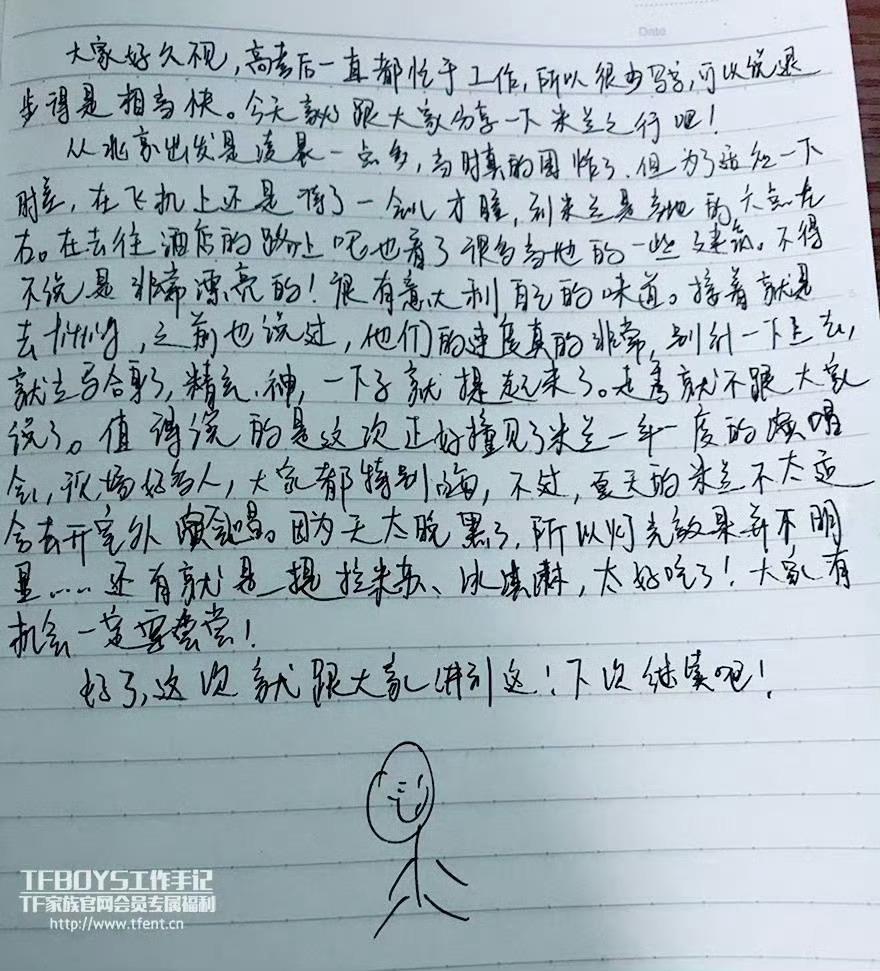 Date
大家好久不见，高考后一直都忙于工作，所以很少写字，可以说退
步得是相当快。今天就跟大家分享一下米兰之行吧！
从北京出发是凌晨一点多，当时真的困炸了，但为了适应一下
时差，在飞机上还是待了一会儿才睡，到米兰是当地的六点左
右。在去往酒店的路上呢也看了很多当地的一些建筑。不得
不说是非常漂亮的！很有意大利自己的味道。接着就是
去fitting，之前也说过，他们的速度真的非常，别针一下上去，
就立马合身了，精气神，一下子就提起来了。走秀就不跟大家
说了。值得说的是这次正好撞见了米兰一年一度的演唱
会，现场好多人，大家都特别嗨，不过，夏天的米兰不太适
合去开室外演唱会。因为天太晚黑了，所以灯光效果并不明
显……还有就是提拉米苏、冰淇淋，太好吃了！大家有
机会一定要尝尝！
好了，这次就跟大家讲到这！下次继续吧！
TFBOYS工作手记
TF家族官网会员专属福利
http://www.tfent.cn